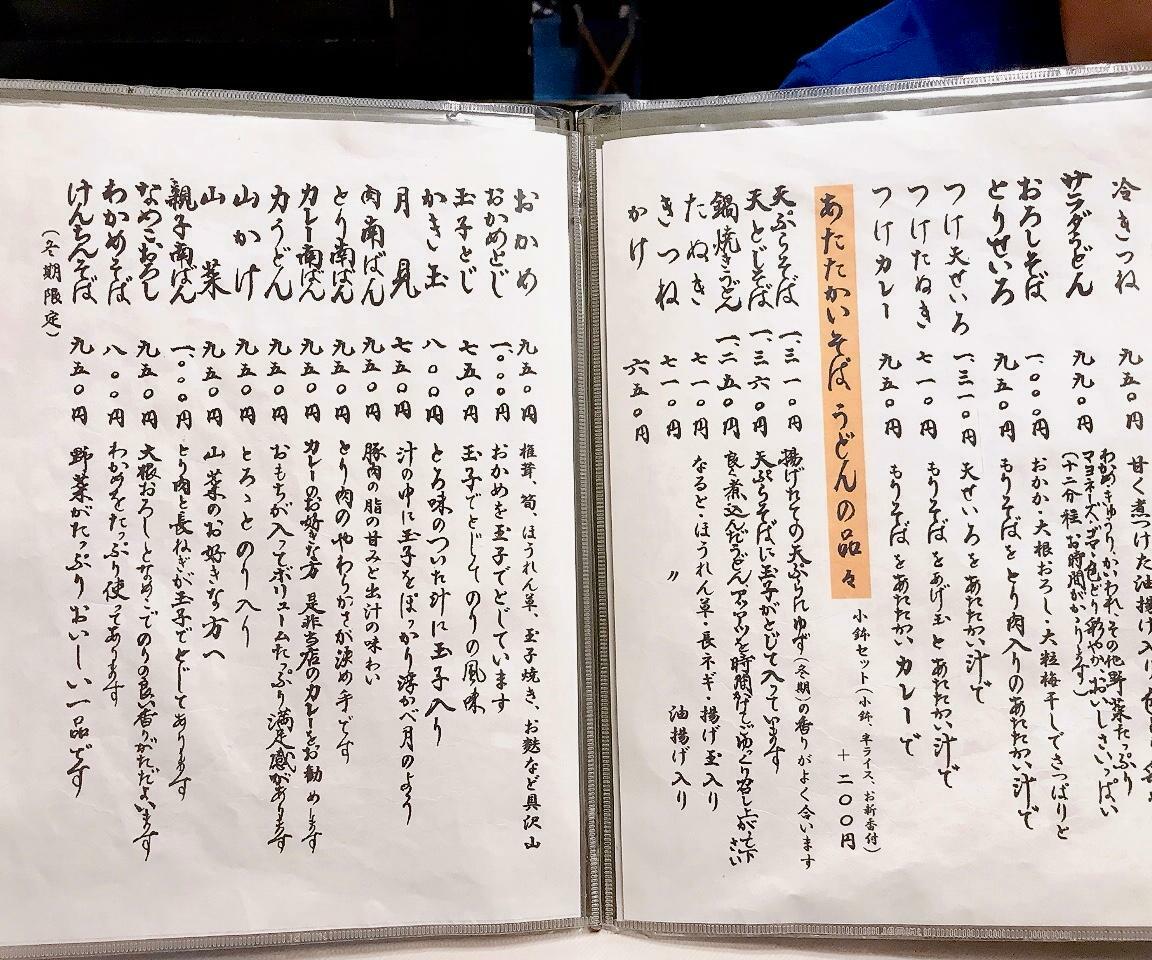 冷きつね 九五〇円 甘く煮つけた油揚げ入り
サラダうどん 九九〇円 わかめ、きゅうり、かいわれ、その他野菜たっぷり
マヨネーズ、ゴマ、色どり彩やか、おいしさいっぱい
(十二分程 お時間がかかります)
おろしそば 一、〇〇〇円 おかか・大根おろし・大粒梅干しでさっぱりと
とりせいろ 九五〇円 もりそばをとり肉入りのあたたかい汁で
つけ天せいろ 一、三一〇円 天せいろをあたたかい汁で
つけたぬき 七一〇円 もりそばをあげ玉とあたたかい汁で
つけカレー 九五〇円 もりそばをあたたかいカレーで
あたたかいそば うどんの品々
小鉢セット(小鉢、半ライス、お新香付)
+二〇〇円
天ぷらそば 一、三一〇円 揚げたての天ぷらにゆず(冬期)の香りがよく合います
天とじそば 一、三六〇円 天ぷらそばに玉子がとじて入っています
鍋焼きうどん 一、二五〇円 良く煮込んだうどん、アツアツを時間かけてごゆっくり召し上がって下さい
たぬき 七一〇円 なると・ほうれん草・長ネギ・揚げ玉入り
きつね 七一〇円 〃 油揚げ入り
かけ 六五〇円
おかめ 九五〇円 椎茸、筍、ほうれん草、玉子焼き、お麩など具沢山
おかめとじ 一、〇〇〇円 おかめを玉子でとじています
玉子とじ 七五〇円 玉子でとじて のりの風味
かき玉 八〇〇円 とろ味のついた汁に玉子入り
月見 七五〇円 汁の中に玉子をぽっかり浮かべ月のよう
肉南ばん 九五〇円 豚肉の脂の甘みと出汁の味わい
とり南ばん 九五〇円 とり肉のやわらかさが決め手です
カレー南ばん 九五〇円 カレーのお好きな方 是非当店のカレーをお勧めします
力うどん 九五〇円 おもちが入ってボリュームたっぷり満足感があります
山かけ 九五〇円 とろゝとのり入り
山菜 九五〇円 山菜のお好きな方へ
親子南ばん 一、〇〇〇円 とり肉と長ねぎが玉子でとじてあります
なめこおろし 九五〇円 大根おろしとなめこでのりの良い香りがただよいます
わかめそば 八〇〇円 わかめをたっぷり使ってあります
けんちんそば 九五〇円 野菜がたっぷりおいしい一品です
(冬期限定)